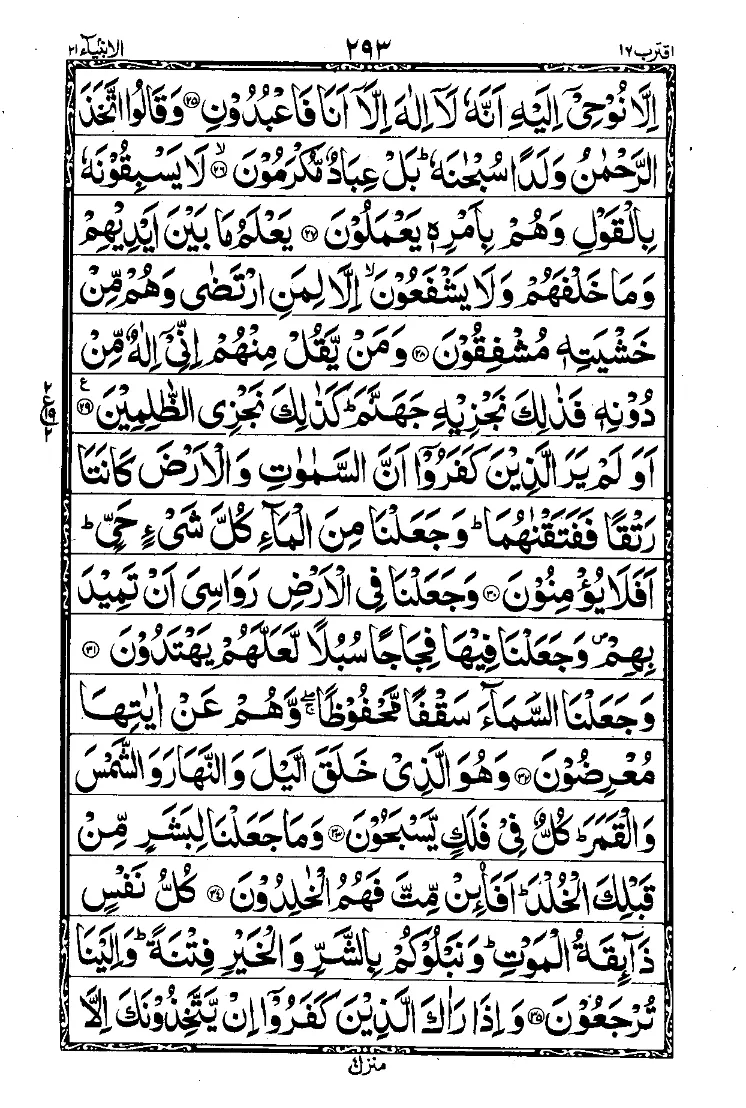 اقترب ١٧
٢٩٣
الانبیآء ٢١
اِلَّا نُوْحِیْۤ اِلَیْهِ اَنَّهٗ لَاۤ اِلٰهَ اِلَّاۤ اَنَا فَاعْبُدُوْنِ ﴿٢٥﴾ وَقَالُوا اتَّخَذَ
الرَّحْمٰنُ وَلَدًا سُبْحٰنَهٗ ؕ بَلْ عِبَادٌ مُّكْرَمُوْنَ ۙ﴿٢٦﴾ لَا یَسْبِقُوْنَهٗ
بِالْقَوْلِ وَهُمْ بِاَمْرِهٖ یَعْمَلُوْنَ ﴿٢٧﴾ یَعْلَمُ مَا بَیْنَ اَیْدِیْهِمْ
وَمَا خَلْفَهُمْ وَلَا یَشْفَعُوْنَ ۙ اِلَّا لِمَنِ ارْتَضٰی وَهُمْ مِّنْ
خَشْیَتِهٖ مُشْفِقُوْنَ ﴿٢٨﴾ وَمَنْ یَّقُلْ مِنْهُمْ اِنِّیْۤ اِلٰهٌ مِّنْ
دُوْنِهٖ فَذٰلِكَ نَجْزِیْهِ جَهَنَّمَ ؕ كَذٰلِكَ نَجْزِی الظّٰلِمِیْنَ ﴿٢٩﴾ ع
٢ ع ١٩ ٢
اَوَلَمْ یَرَ الَّذِیْنَ كَفَرُوْۤا اَنَّ السَّمٰوٰتِ وَالْاَرْضَ كَانَتَا
رَتْقًا فَفَتَقْنٰهُمَا ؕ وَجَعَلْنَا مِنَ الْمَآءِ كُلَّ شَیْءٍ حَیٍّ ؕ
اَفَلَا یُؤْمِنُوْنَ ﴿٣٠﴾ وَجَعَلْنَا فِی الْاَرْضِ رَوَاسِیَ اَنْ تَمِیْدَ
بِهِمْ ۪ وَجَعَلْنَا فِیْهَا فِجَاجًا سُبُلًا لَّعَلَّهُمْ یَهْتَدُوْنَ ﴿٣١﴾
وَجَعَلْنَا السَّمَآءَ سَقْفًا مَّحْفُوْظًا ۚۖ وَّهُمْ عَنْ اٰیٰتِهَا
مُعْرِضُوْنَ ﴿٣٢﴾ وَهُوَ الَّذِیْ خَلَقَ الَّیْلَ وَالنَّهَارَ وَالشَّمْسَ
وَالْقَمَرَ ؕ كُلٌّ فِیْ فَلَكٍ یَّسْبَحُوْنَ ﴿٣٣﴾ وَمَا جَعَلْنَا لِبَشَرٍ مِّنْ
قَبْلِكَ الْخُلْدَ ؕ اَفَا۠ئِنْ مِّتَّ فَهُمُ الْخٰلِدُوْنَ ﴿٣٤﴾ كُلُّ نَفْسٍ
ذَآئِقَةُ الْمَوْتِ ؕ وَنَبْلُوْكُمْ بِالشَّرِّ وَالْخَیْرِ فِتْنَةً ؕ وَاِلَیْنَا
تُرْجَعُوْنَ ﴿٣٥﴾ وَاِذَا رَاٰكَ الَّذِیْنَ كَفَرُوْۤا اِنْ یَّتَّخِذُوْنَكَ اِلَّا
منزل ٤